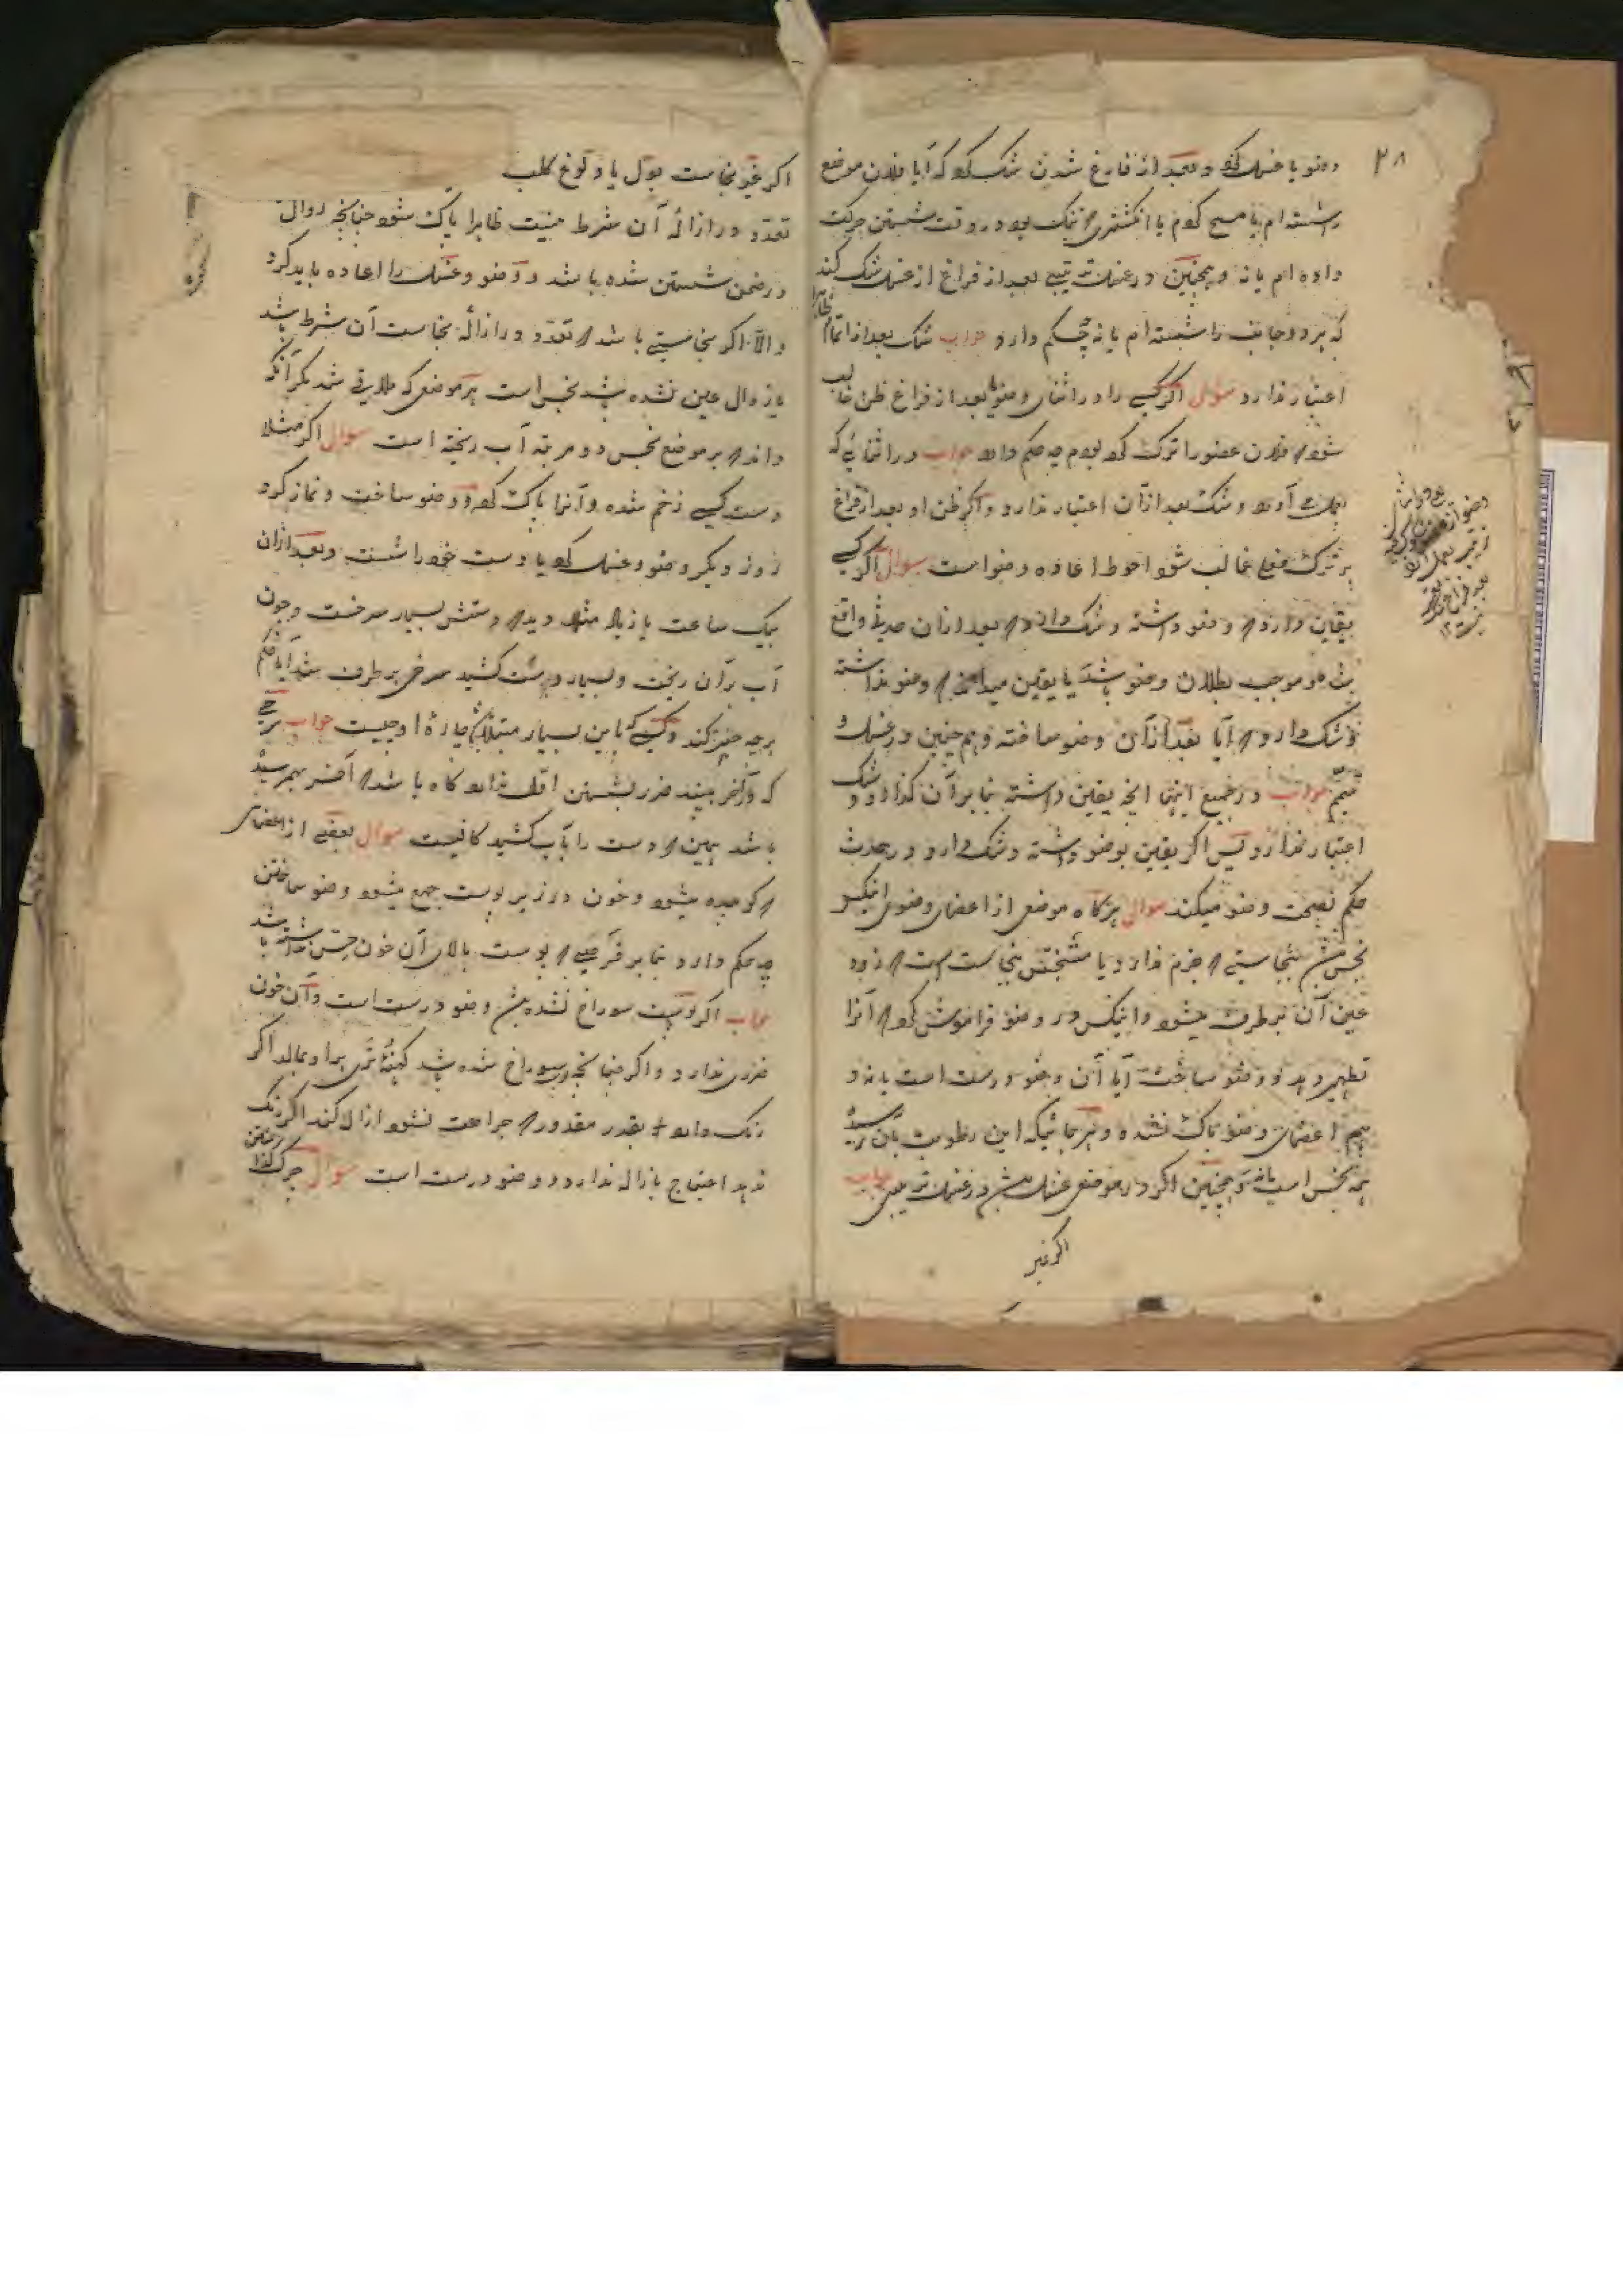 ۲۸
وضو یا غسل کرد و بعد از فارغ شدن شک کرد که آیا فلان موضع
را شسته ام یا مسح کردم یا انگشتری که تنگ بود در وقت شستن حرکت
داده ام یا نه و همچنین در غسل ترتیبی بعد از فراغ از غسل شک کند
که هر دو جانب را شسته ام یا نه چه حکم دارد جواب شک بعد از اتمام
اعتبار ندارد سوال اگر کسی را در اثنای وضو یا بعد از فراغ ظن غالب
شود که فلان عضو را ترک کرده بودم چه حکم دارد جواب در اثنا باید که
بعمل آورد و شک بعد از آن اعتبار ندارد و اگر ظن او بعد از فراغ
بر ترک فعل غالب شود احوط اعاده وضو است سوال اگر کسی
یقین دارد که وضو داشته و شک دارد که بعد از آن حدثی واقع
شده که موجب بطلان وضو باشد یا یقین میداند که وضو نداشته
و شک دارد که آیا بعد از آن وضو ساخته و هم چنین در غسل و
تیمم جواب در جمیع اینها آنچه یقین داشته بنا بر آن گذارد و شک
اعتبار ندارد پس اگر یقین بوضو داشته و شک دارد در حدث
حکم بصحت وضو میکند سوال هرگاه موضعی از اعضای وضوی اینکس
نجس شد بنجاستی که جرم ندارد یا متنجس بنجاستی است که زود
عین آن برطرف میشود و اینکس در وضو فراموش کرد که آنرا
تطهیر دهد و وضو ساخت آیا آن وضو درست است یا نه و
هم اعضای وضو پاک نشده و هر جائیکه این رطوبت بآن رسیده
همه نجس است یا نه و همچنین اگر در موضعی غسل شد در غسل ترتیبی جواب
اگر غیر
اگر غیر نجاست بول یا ولوغ کلب
تعدد در ازاله آن شرط نیست ظاهرا پاک شود چنانچه زوال
در ضمن شستن شده باشد و وضو و غسل را اعاده باید کرد
و الا اگر نجاستی باشد که تعدد در ازاله نجاست آن شرط باشد
یا زوال عین نشده باشد نجس است هر موضعی که ملاقی شد مگر آنکه
داند که بر موضع نجس دو مرتبه آب ریخته است سوال اگر مثلا
دست کسی زخم شده و آنرا پاک کرد و وضو ساخت و نماز کرد
روز دیگر وضو و غسل کرد یا دست خود را شست و بعد از آن
بیک ساعت یا زیاد مثلا دید که دستش بسیار سرخست و چون
آب بر آن ریخت و بسیار دست کشید سرخی برطرف شد آیا حکم
بر چه چیز کند و کسی که باین بسیار مبتلا باشد چاره او چیست جواب هرچه
که در آخر ببیند ضرر بشستن اول ندارد گاه باشد که آخر بهم رسیده
باشد همین که دست را بآب کشید کافیست سوال بعضی از اعضای
که کوبیده میشود و خون در زیر پوست جمع میشود وضو ساختن
چه حکم دارد بنا بر فرضی که پوست بالای آن خون حس نداشته باشد
جواب اگر پوست سوراخ نشده باشد وضو درست است و آن خون
ضرری ندارد و اگر چنانچه سوراخ شده باشد کهنه تری بر او بمالد اگر
رنگ دارد بقدر مقدور که جراحت نشود ازاله کند اگر رنگ
ندهد احتیاج بازاله ندارد و وضو درست است سوال چرک